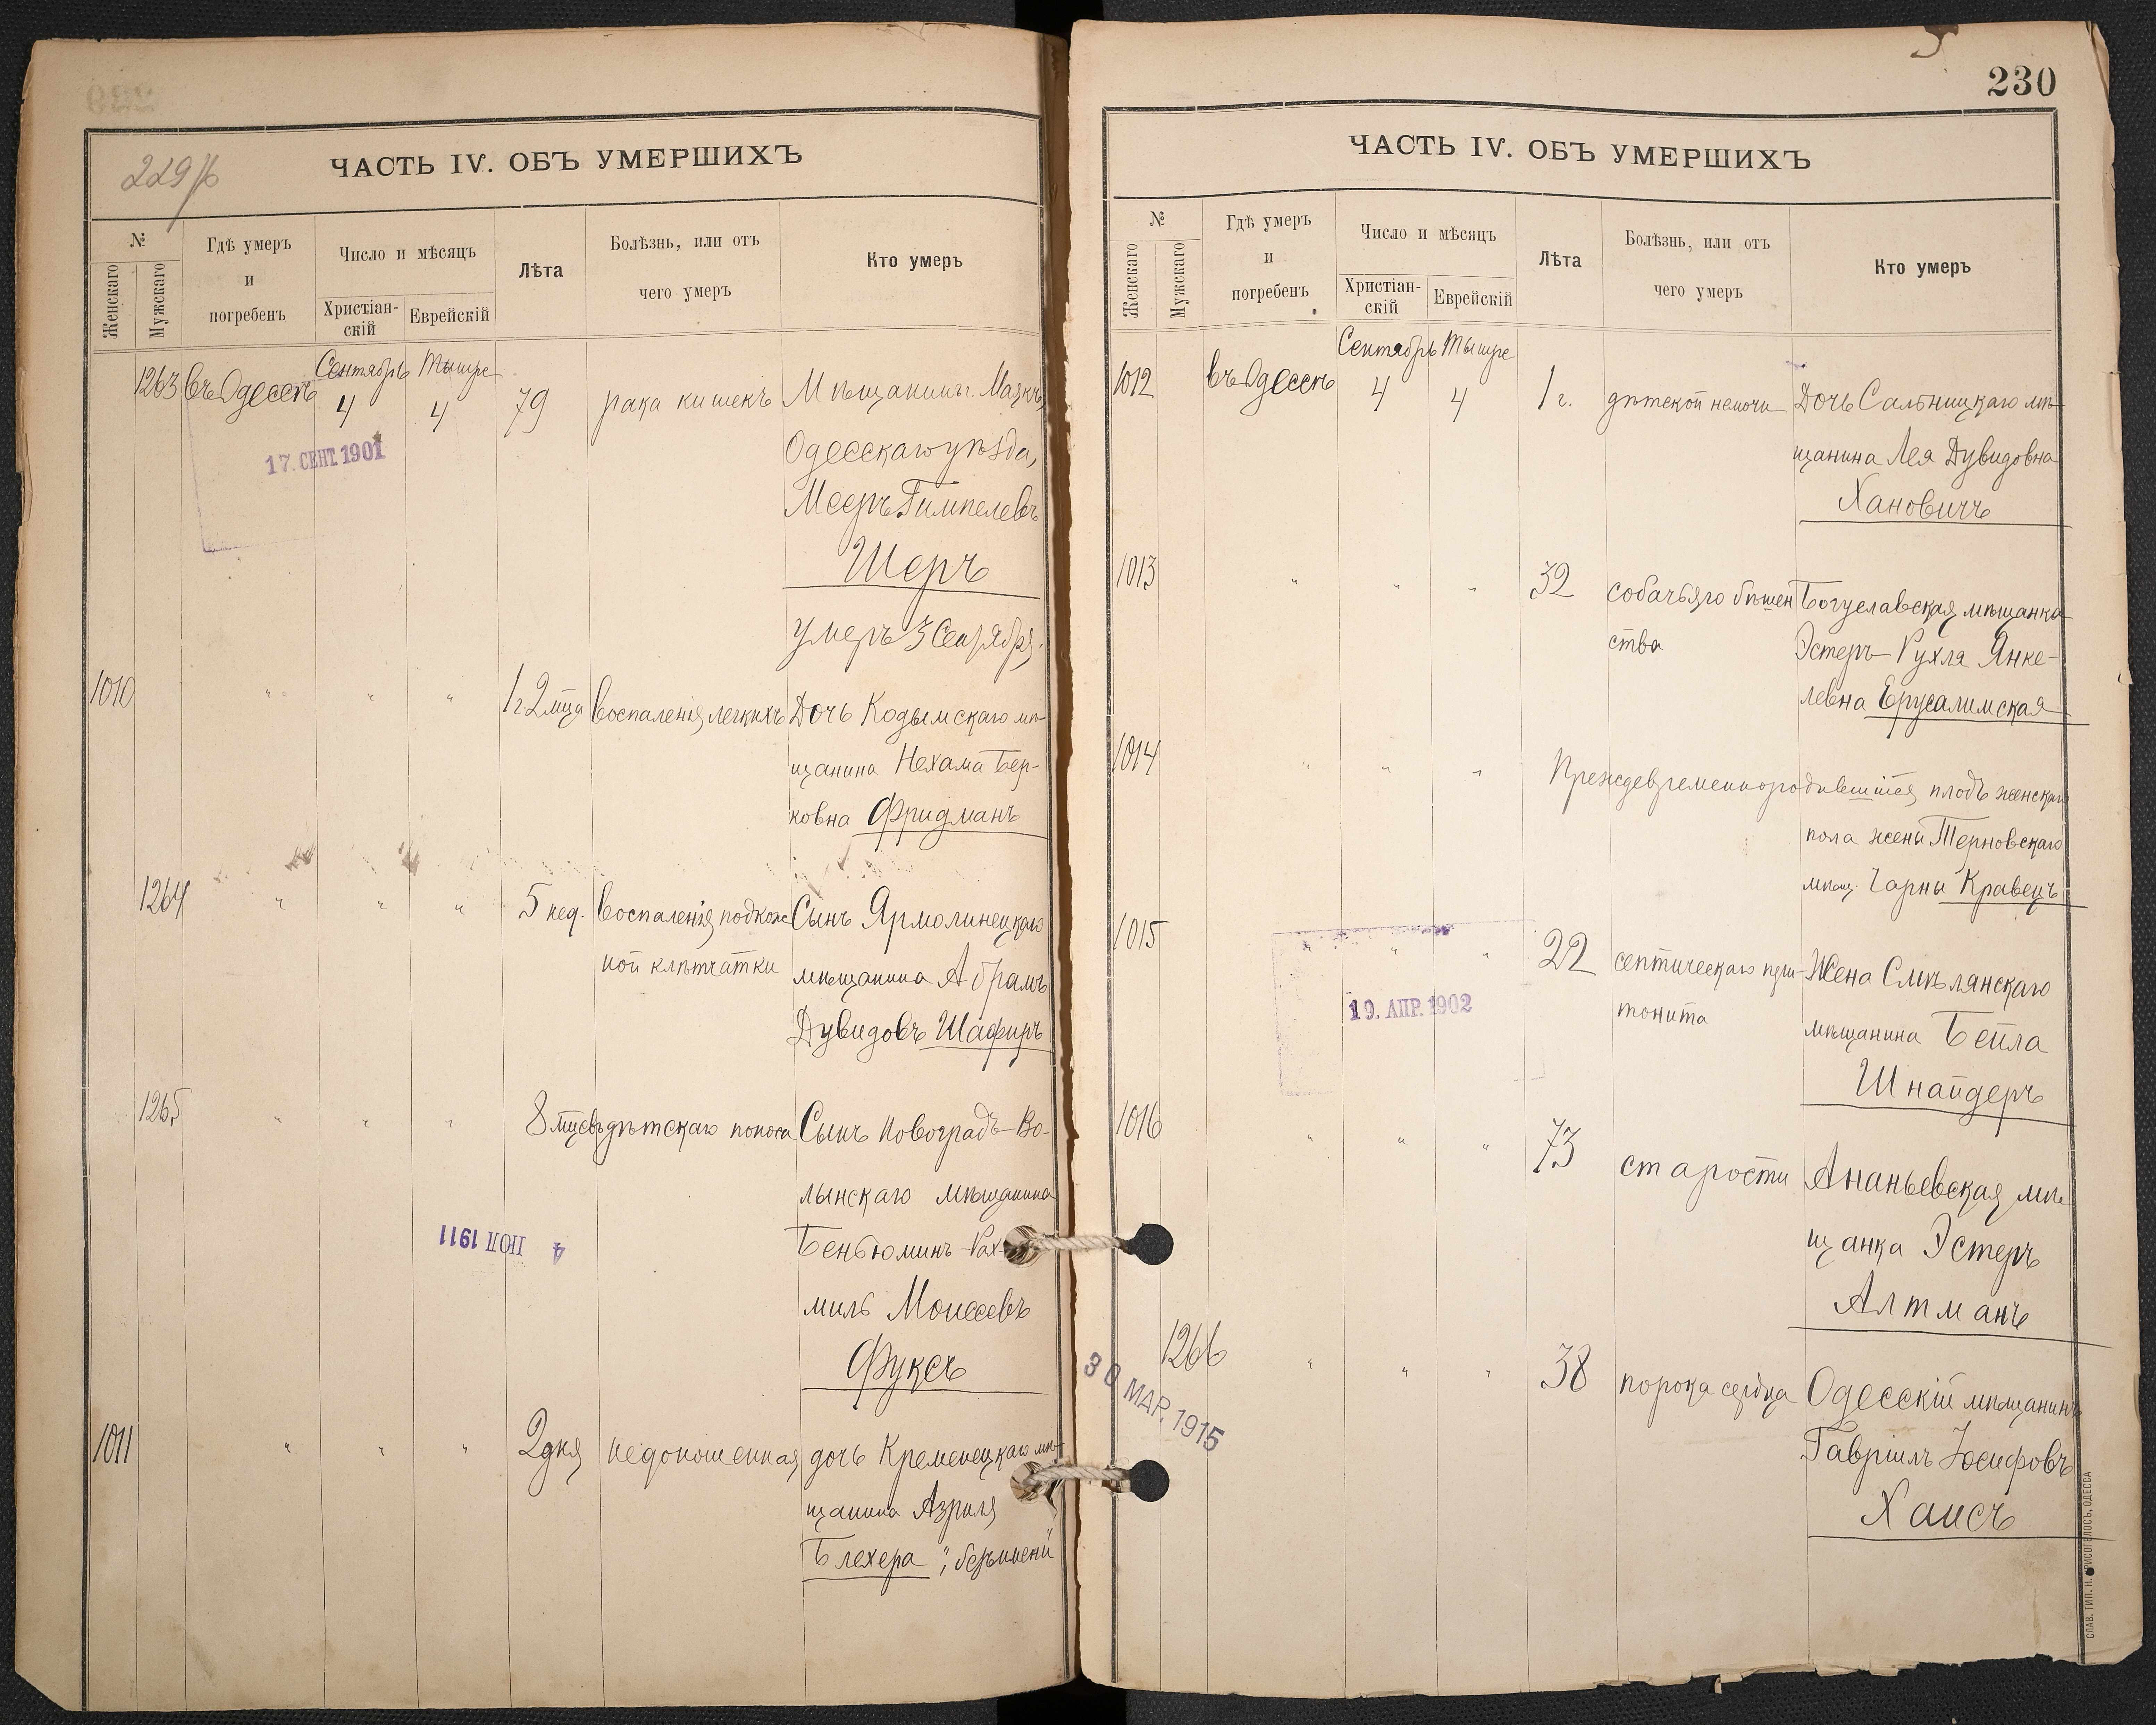 229 об
ЧАСТЬ IV. ОБЪ УМЕРШИХЪ
№
Женскаго
Мужскаго
Гдѣ умеръ
и
погребенъ
Число и мѣсяцъ
Христіан-
скій
Еврейскій
Лѣта
Болѣзнь, или отъ
чего умеръ
Кто умеръ
Сентябрь Тышре
1263 въ Одессѣ 4 4 79 рака кишекъ Мѣщанинъ г. Маякъ,
Одесскаго уѣзда,
17. СЕНТ. 1901
Мееръ Гимпелевъ
Шеръ
умеръ 3 Сентября.
1010 " " " 1 г. 2 мца воспаленія легкихъ Дочь Кодымскаго мѣ-
щанина Нехама Бер-
ковна Фридманъ
1264 " " " 5 нед. воспаленія подкож Сынъ Ярмолинецкаго
ной клѣтчатки мѣщанина Абрамъ
Дувидовъ Шафиръ
1265 " " " 8 мцевъ дѣтскаго поноса Сынъ Новоградъ-Во-
лынскаго мѣщанина
4 ІЮЛ 1911
Беньюминъ-Рах-
миль Моисеевъ
Фуксъ
1011 " " " 2 дня недоношенная дочь Кременецкаго мѣ-
щанина Азриля
Блехера
230
ЧАСТЬ IV. ОБЪ УМЕРШИХЪ
№
Женскаго
Мужскаго
Гдѣ умеръ
и
погребенъ
Число и мѣсяцъ
Христіан-
скій
Еврейскій
Лѣта
Болѣзнь, или отъ
чего умеръ
Кто умеръ
Сентябрь Тышре
1012 въ Одессѣ 4 4 1 г. дѣтской немочи Дочь Сальницкаго мѣ-
щанина Лея Дувидовна
Хановичъ
1013 " " " 32 собачьяго бѣшен Богуславская мѣщанка
ства Эстеръ-Рухля Янке-
левна Ерусалимская
1014 " " " Преждевременнородившійся плодъ женскаго
пола жены Терновскаго
мѣщ. Чарны Кравецъ
1015 " " " 22 септическаго пери- Жена Смѣлянскаго
тонита мѣщанина Бейла
19. АПР. 1902
Шнайдеръ
1016 " " " 73 старости Ананьевская мѣ
щанка Эстеръ
Алтманъ
1266 " " " 38 порока сердца Одесскій мѣщанинъ
30 МАР. 1915
Гавріилъ Іосифовъ
Хаисъ
СЛАВ. ТИП. Н. ХРИСОГЕЛОСЪ, ОДЕССА